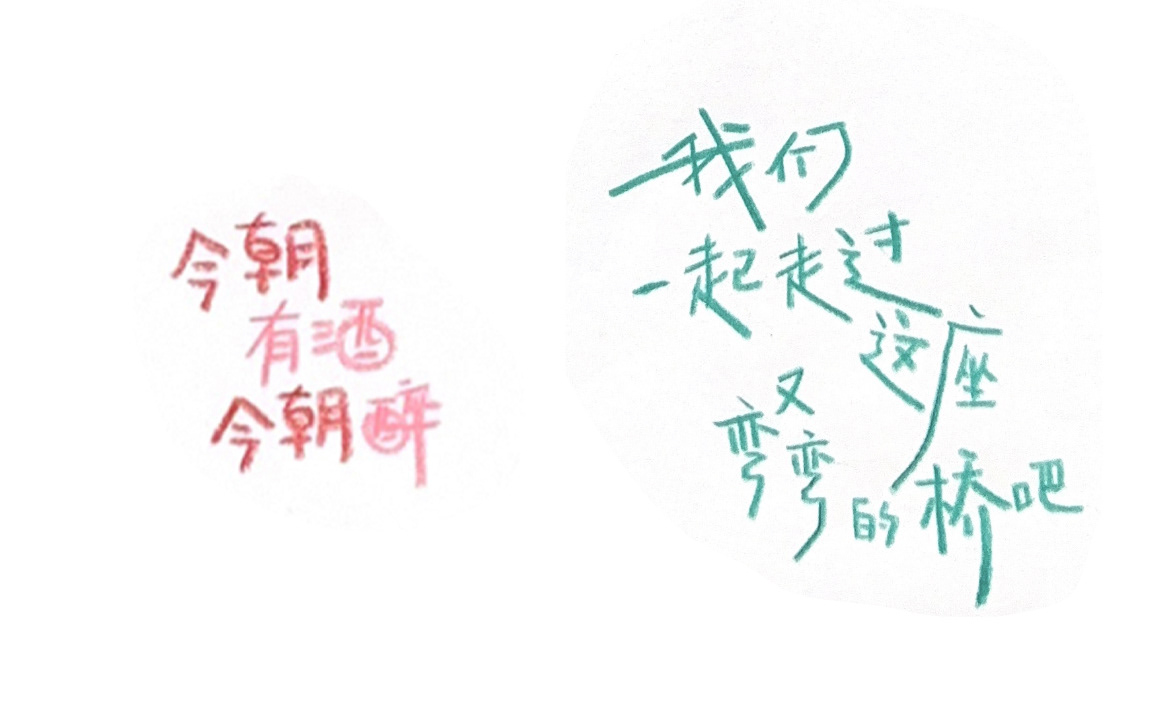 今朝
有酒
今朝醉
我们
一起走过
这座
弯又弯
的桥吧